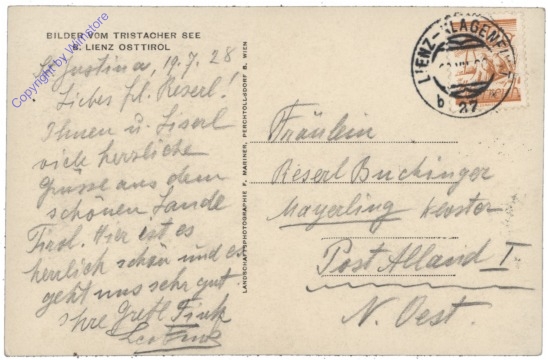 BILDER VOM TRISTACHER SEE
B. LIENZ OSTTIROL
St. Justina, 19.7.28
Liebes frl. Reserl!
Ihnen u. Liserl
viele herzliche
Grüsse aus dem
schönen Lande
Tirol. Hier ist es
herrlich schön und es
geht uns sehr gut.
Ihre Gretl Fink
Leo Fink
LANDSCHAFTSPHOTOGRAPHIE F. MARINER, PERCHTOLDSDORF B. WIEN
LIENZ-KLAGENFURT
b 27
Fräulein
Reserl Buchinger
Mayerling Kloster
Post Alland I.
N. Oest.
Copyright by Winstore